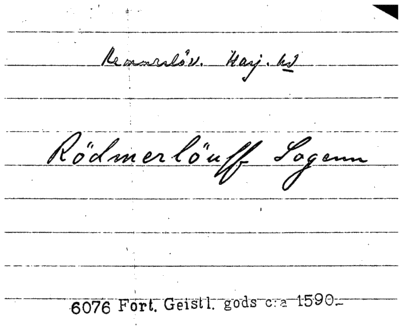 Remmerlöv. Harj. hd
Rödmerlöuff Sogenn
6076 Fort. Geistl. gods c:a 1590.